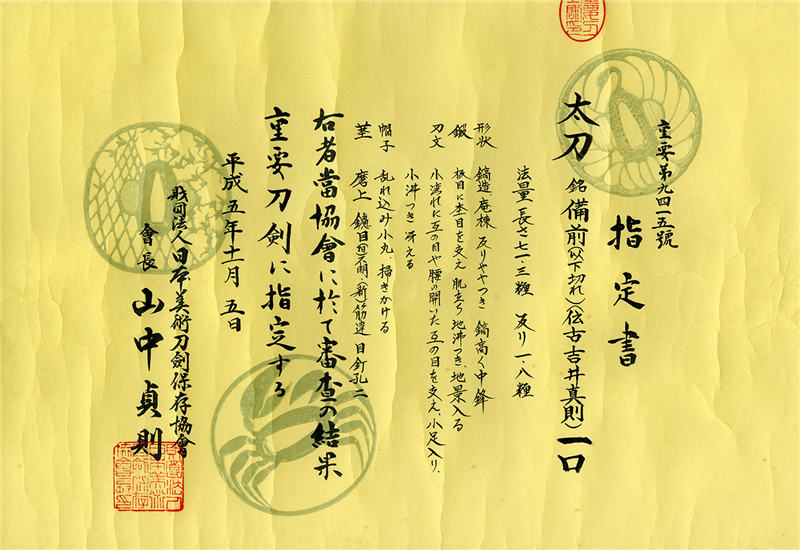 重要第九四一五號
指定書
太刀 銘 備前(以下切れ)(伝古吉井真則) 一口
法量 長さ七一・三糎 反り一・八糎
形状 鎬造 庵棟 反りややつき 鎬高く中鋒
鍛 板目に杢目を交え 肌立ち 地沸つき、地景入る
刃文 小湾れに互の目や腰の開いた互の目を交え、小足入り、
小沸つき 冴える
帽子 乱れ込み小丸、掃きかける
茎 磨上 鑢目旧不明・新筋違 目釘孔二
右者當協會に於て審査の結果
重要刀剣に指定する
平成五年十一月五日
財団法人日本美術刀劍保存協會
會長 山中貞則